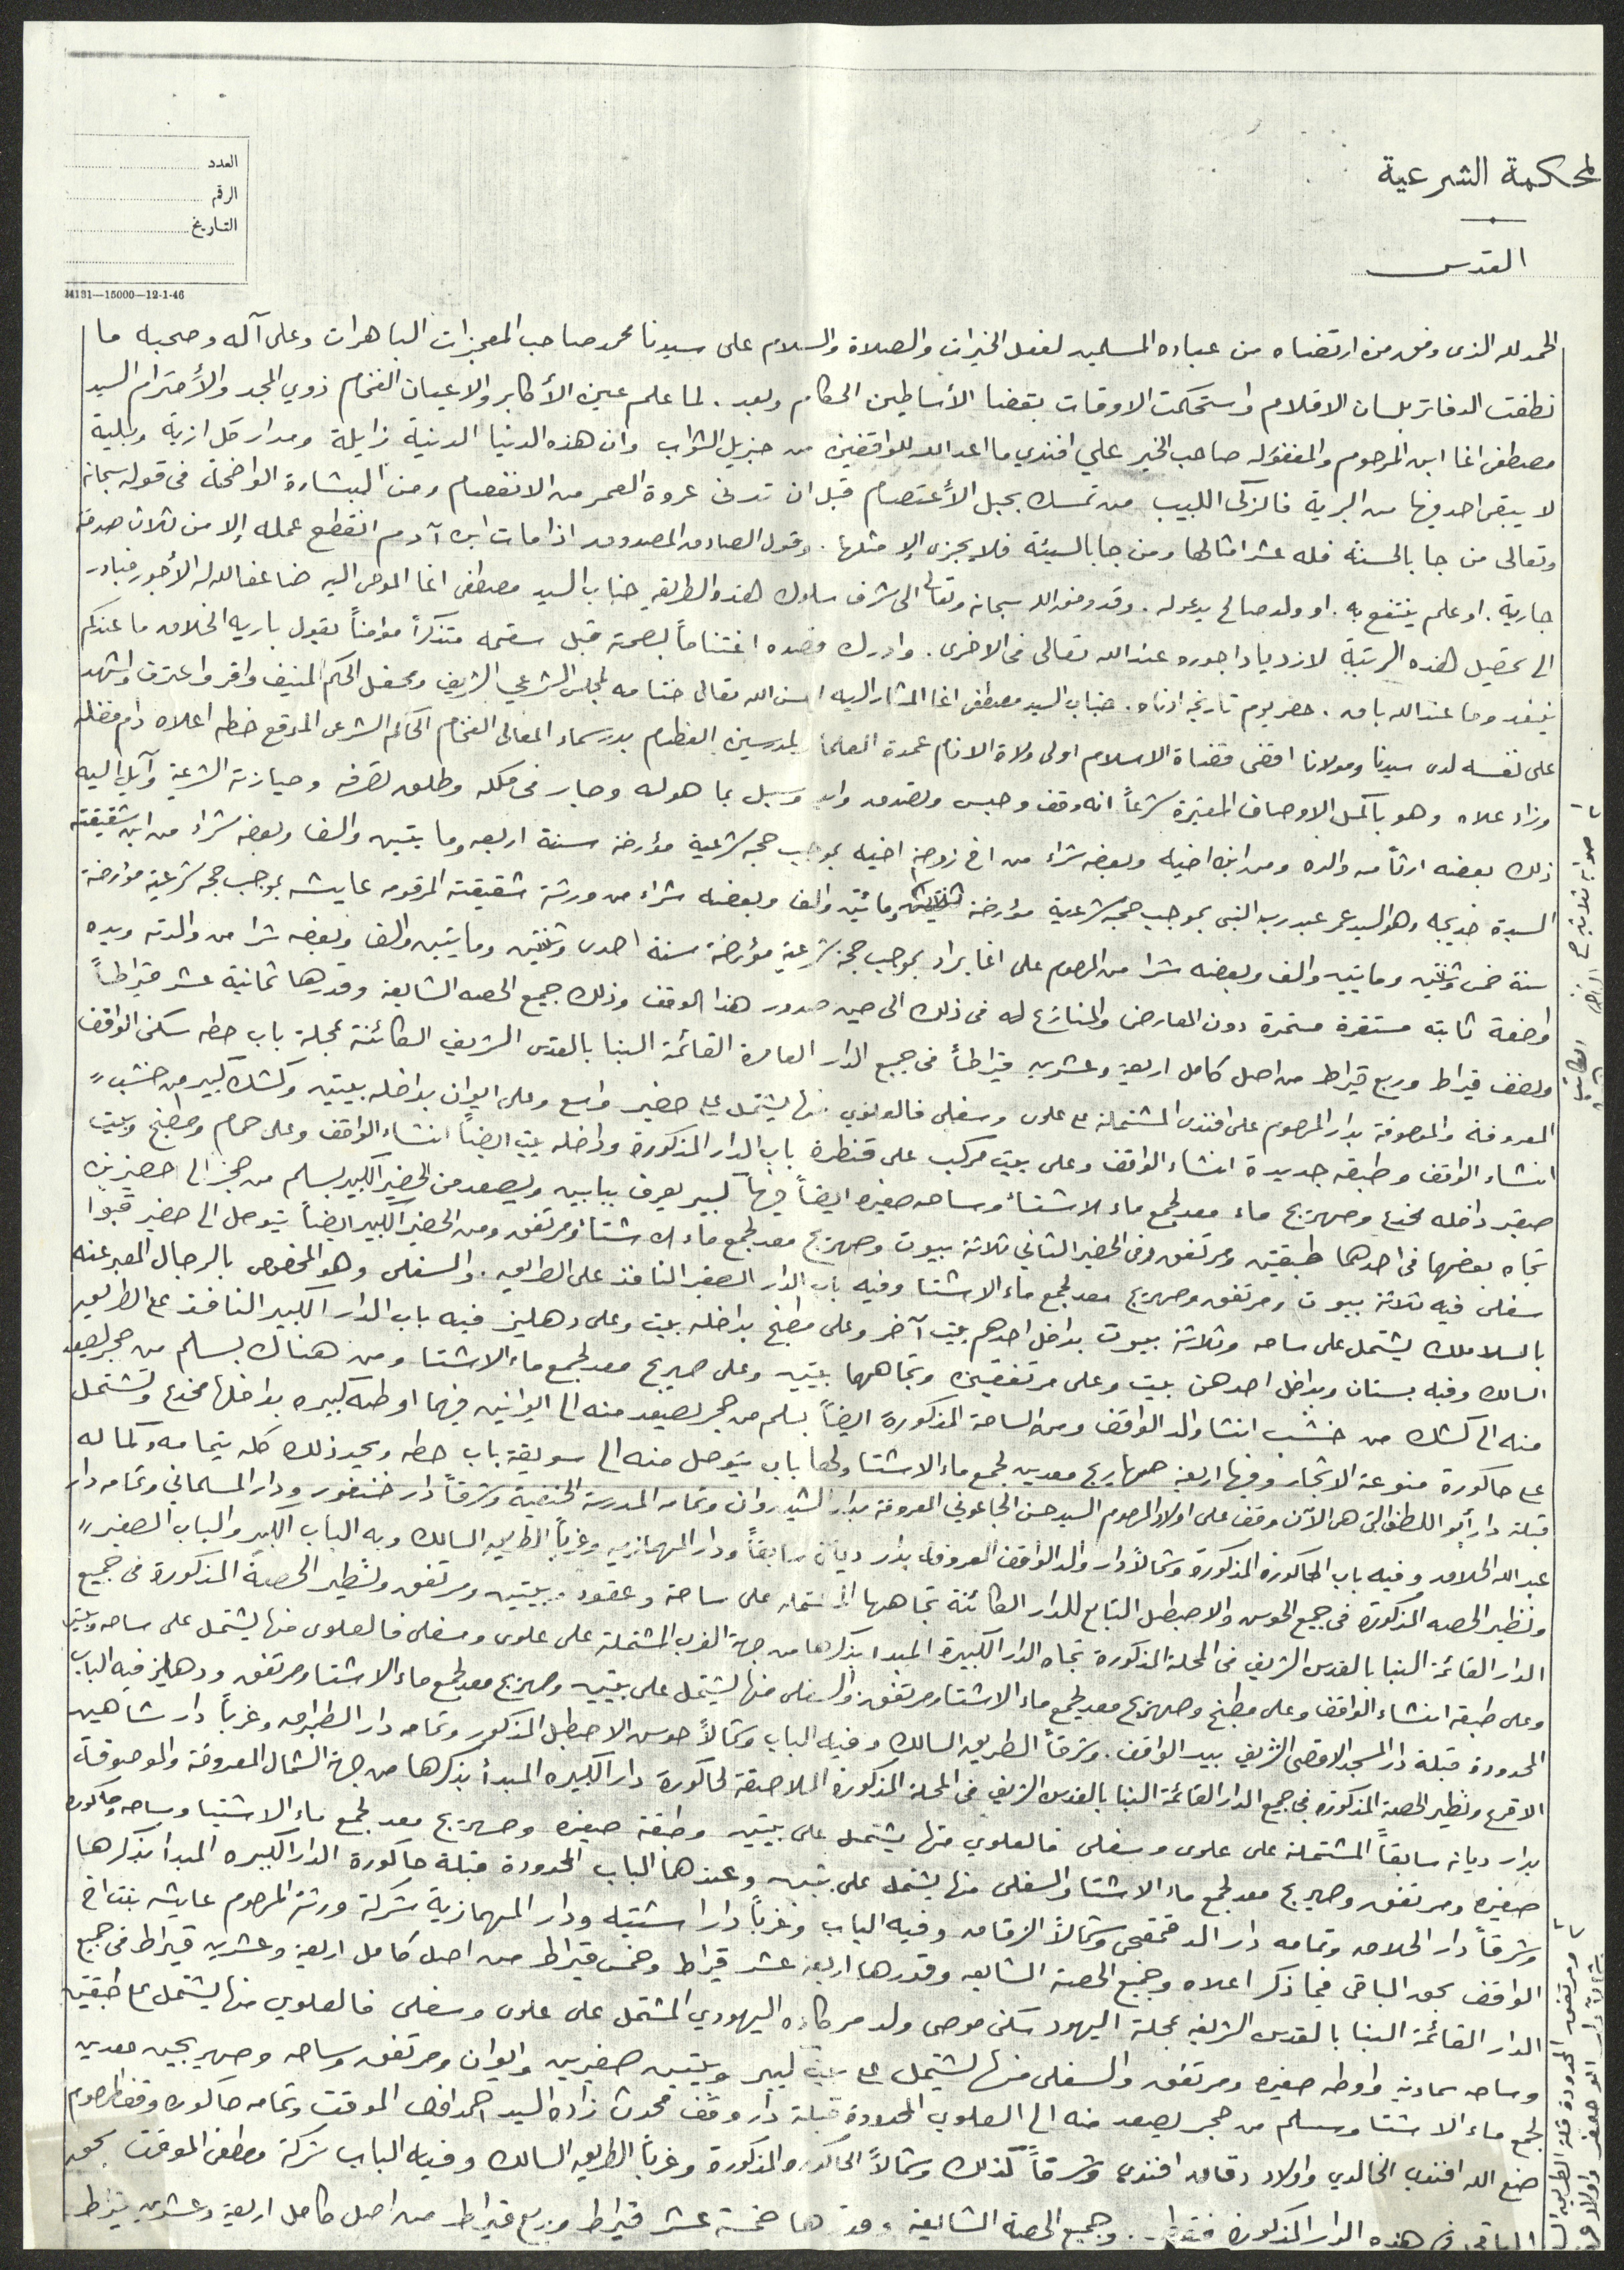 المحكمة الشرعية
القدس
العدد
الرقم
التاريخ
M131—15000—12-1-46
الحمد لله الذى وفق من ارتضاه من عباده المسلمين لفعل الخيرات والصلاة والسلام على سيدنا محمد صاحب المعجزات الباهرات وعلى آله وصحبه ما
نطقت الدفاتر بلسان الاقلام واستحكمت الاوقات بقضا الأساطين الحكام وبعد . لما علم عين الأكابر والاعيان الفخام ذوي المجد والأحترام السيد
مصطفى اغا ابن المرحوم والمغفوله صاحب الخير علي افندي ما اعد الله للواقفين من جزيل الثواب وان هذه الدنيا الدنية زايلة ومدار كل ازية وبلية
لا يبقى احد فيها من البرية فالزكى اللبيب من تمسك بحبل الأعتصام قبل ان تدنى عروة العمر من الانفصام ومن البشارة الواضحة فى قوله سبحانه
وتعالى من جا بالحسنة فله عشر امثالها ومن جا بالسيئة فلا يجزى إلا مثلها . وقول الصادق المصدوق اذا مات ابن آدم انقطع عمله إلا من ثلاث صدقة
جارية . او علم ينتفع به . او ولد صالح يدعو له . وقد وفق الله سبحانه وتعالى الى شرف سلوك هذه الطريقه جناب السيد مصطفى اغا الموصى اليه ضاعف الله له الأجور فبادر
الى تحصيل هذه الرتبة لازدياد اجوره عند الله تعالى فى الاخرى . وادرك قصده اغتناماً لصحته قبل سقمه متذكراً موامناً لقول باريه الخلاق ما عندكم
ينفد وما عند الله باق . حضر يوم تاريخه ادناه . جناب السيد مصطفى اغا المشار اليه احسن الله تعالى ختامه لمجلس الشرعي الشريف ومحفل الحكم المنيف واقر واعترف واشهد
على نفسه لدى سيدنا ومولانا اقضى قضاة الاسلام اولى ولاة الانام عمدة العلما المدرسين العظام بدر سماء المعالى الفخام الحاكم الشرعى الموقع خطه اعلاه دام فضله
وزاد علاه وهو باكمل الاوصاف المعتبرة شرعاً انه وقف وحبس وتصدق وابد وسبل بما هو له وجار فى ملكه وطلق تصرفه وحيازته الشرعية وآيل اليه
ذلك بعضه ارثاً من والده ومن ابن اخيه وبعضه شراء من اخ زوجة اخيه بموجب حجه شرعية مؤرخة سنة اربعه ومايتين والف وبعضه شراء من ابن شقيقته
السيدة خديجه وهو السيد عمر عبد رب النبى بموجب حجه شرعية مؤرخة ومائتين والف وبعضه شراء من ورثة شقيقته المرقومه عايشه بموجب حجه شرعية مؤرخة
سنة خمس وثلاثين ومايتين والف وبعضه شرا من المرحوم على اغا بموجب حجة شرعية مؤرخة سنة احدى وثلاثين ومايتين والف وبعضه شرا من والدته ويده
واضعة ثابته مستقرة مستمرة دون المعارض والمنازع له فى ذلك الى حين صدور هذا الوقف وذلك جميع الحصه الشايعة وقدرها ثمانية عشر قيراطاً
ونصف قيراط وربع قيراط من اصل كامل اربعة وعشرين قيراطاً فى جميع الدار العامرة القائمة البنا بالقدس الشريف الكائنة بمحلة باب حطه سكن الواقف
المعروفة والموصوفة بدار المرحوم على افندى المشتملة على علوى وسفلى فالعلوي منها يشتمل على حضير واسع وعلى ايوان بداخله بيتين وكشك كبير من خشب
انشاء الواقف وطبقه جديدة انشاء الواقف وعلى بيت مركب على قنطرة باب الدار المذكورة وداخله بيت ايضاً انشاء الواقف وعلى حمام ومطبخ وبيت
صغير داخله مخدع وصهريج ماء معد لجمع ماء الاشتا وساحه صغيره ايضاً فيها كبير يعرف ببابين ويصعد من الحضير الكبير بسلم من حجر الى حضيرين
تجاه بعضهما فى احدهما طبقتين ومرتفق وفى الحضير الثاني ثلاثة بيوت وصهريج معد لجمع ماء الاشتا ومرتفق ومن الحضير الكبير ايضاً يتوصل الى حضير قبوا
سفلى فيه ثلاثة بيوت ومرتفق وصهريج معد لجمع ماء الاشتا وفيه باب الدار الصغير النافذ على الطريق . والسفلى وهو المخصوص بالرجال المعبر عنه
بالسلاملك يشتمل على ساحه وثلاثة بيوت بداخل احدهم بيت آخر وعلى مطبخ بداخله بيت وعلى دهليز فيه باب الدار الكبير النافذ على الطريق
السالك وفيه بستان وبداخل احدهن بيت وعلى مرتفقين وتجاههما بيتين وعلى صهريج معد لجمع ماء الاشتا ومن هناك بسلم من حجر يصعد
منه الى كشك من خشب انشا والد الواقف ومن الساحة المذكورة ايضاً بسلم من حجر يصعد منه الى ايوانين فيهما اوطه كبيره بداخلها مخدع ويشتمل
على حاكورة منوعة الاشجار وفيها اربعة صهاريج معدين لجمع ماء الاشتا ولها باب يتوصل منه الى سويقة باب حطه ويحد ذلك كله بتمامه وكماله
قبلة دار أبو اللطف التى هى الآن وقف على اولاد المرحوم السيد حسن الجاعوني المعروفة بدار الشيروان وتمامه المدرسة الحنفية وشرقاً دار خنفور ودار المسلماني وتمامه دار
عبد الله الحلاق وفيه باب الحاكورة المذكورة وشمالاً دار والد الواقف المعروفة بدار ديانة سابقاً ودار المهمازيه وغرباً الطريق السالك وبه الباب الكبير والباب الصغير
ونظير الحصه المذكورة فى جميع الحوس والاصطبل التابع للدار الكائنة تجاهها المشتمله على ساحة وعقود وبيتين ومرتفق ونظير الحصة المذكورة فى جميع
الدار القائمة البنا بالقدس الشريف فى المحلة المذكورة تجاه الدار الكبيرة المبدا بذكرها من جهة الغرب المشتملة على علوى وسفلى فالعلوى منها يشتمل على ساحه وبيتين
وعلى طبقه انشاء الواقف وعلى مطبخ وصهريج معد لجمع ماء الاشتا ومرتفق . والسفلى منها يشتمل على بيتين وصهريج معد لجمع ماء الاشتا ومرتفق ودهليز فيه الباب
المحدودة قبلة دار المسجد الاقصى الشريف بيد الواقف . وشرقاً الطريق السالك وفيه الباب وشمالاً حوس الاصطبل المذكور وتمامه دار الطبراق وغرباً دار شاهين
الاقرع ونظير الحصة المذكوره فى جميع الدار القائمة البنا بالقدس الشريف فى المحلة المذكورة الملاصقة لحاكورة دار الكبيره المبدأ بذكرها من جهة الشمال المعروفة والموصوفة
بدار ديانه سابقاً المشتملة على علوى وسفلى فالعلوي منها يشتمل على بيتين وطبقة صغيره وصهريج معد لجمع ماء الاشتا وساحه وحاكوره
صغيره ومرتفق وصهريج معد لجمع ماء الاشتا والسفلى منها يشتمل على بيتين وعندها الباب المحدودة قبلة حاكورة الدار الكبيره المبدا بذكرها
وشرقاً دار الحلاق وتمامه دار الدقمقجى وشمالاً الزقاق وفيه الباب وغرباً دار اشتيه ودار المهمازية شركة ورثة المرحوم عايشه بنت اخ
الواقف بحق الباقى فيما ذكر اعلاه وجميع الحصة الشايعه وقدرها اربعة عشر قيراط وخمس قيراط من اصل كامل اربعة وعشرين قيراط فى جميع
الدار القائمة البنا بالقدس الشريف بمحلة اليهود سكن موصى ولد مركاده اليهودي المشتمل على علوى وسفلى فالعلوي منها يشتمل على طبقتين
وساحه سماوية واوطه صغيره ومرتفق والسفلى منها يشتمل على بيت كبير وبيتين صغيرين وايوان ومرتفق وساحه وصهريجين معدين
لجمع ماء الاشتا وسلم من حجر يصعد منه الى العلوي المحدودة قبلة دار وقف زاده السيد احمد افندى الموقت وتمامه حاكوره وقف المرحوم
صنع الله افندي الخالدي واولاد دقاق افندى وشرقاً كذلك وشمالاً الحاكوره المذكورة وغرباً الطريق السالك وفيه الباب شركة مصطفى الموقت بحق
الباقى فى هذه الدار المذكورة فقط . وجميع الحصة الشايعة وقدرها خمسة عشر قيراط وربع قيراط من اصل كامل اربعة وعشرين قيراط